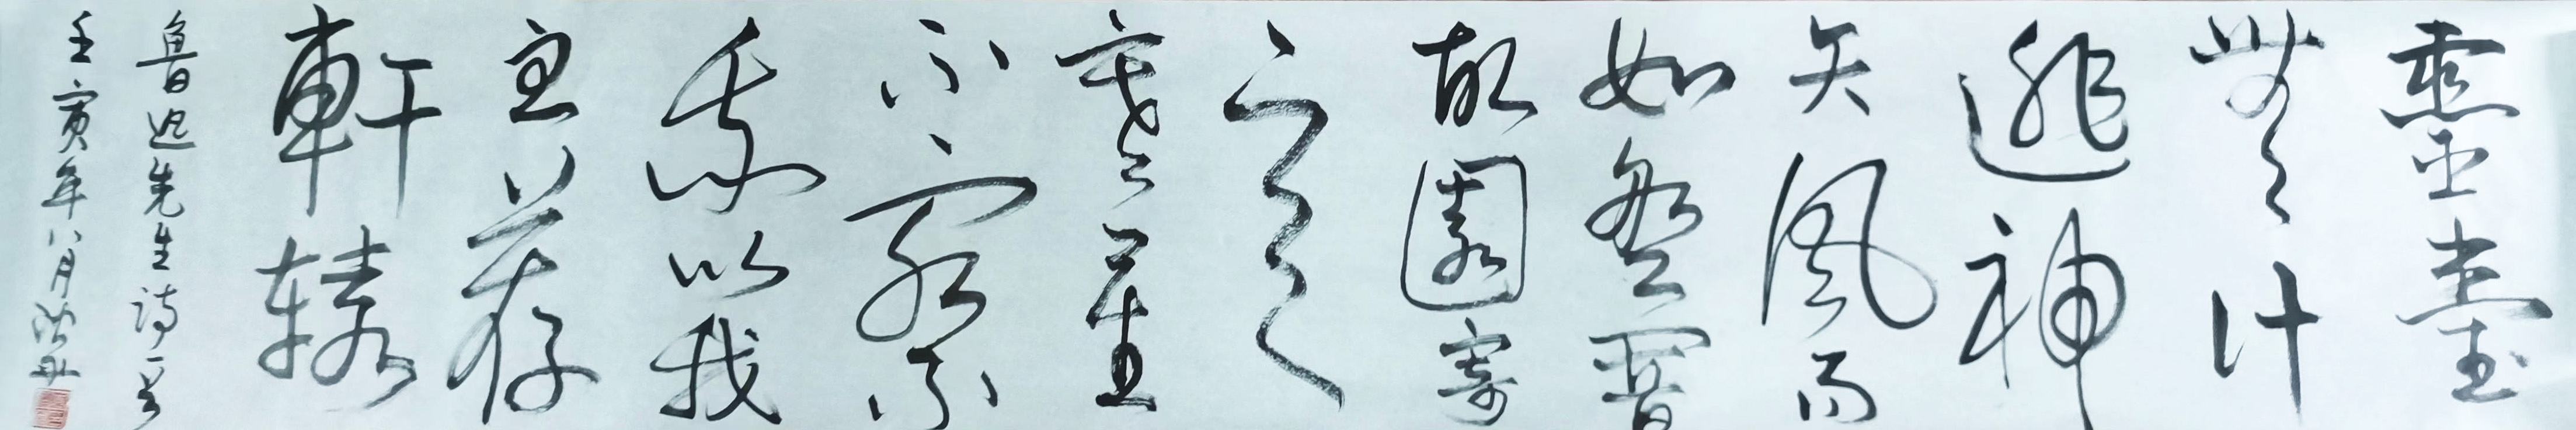 靈臺
無計
逃神
矢風雨
如磐闇
故園寄
意
寒星荃
不察
我以我
血荐
軒轅
魯迅先生詩一首
壬寅年八月